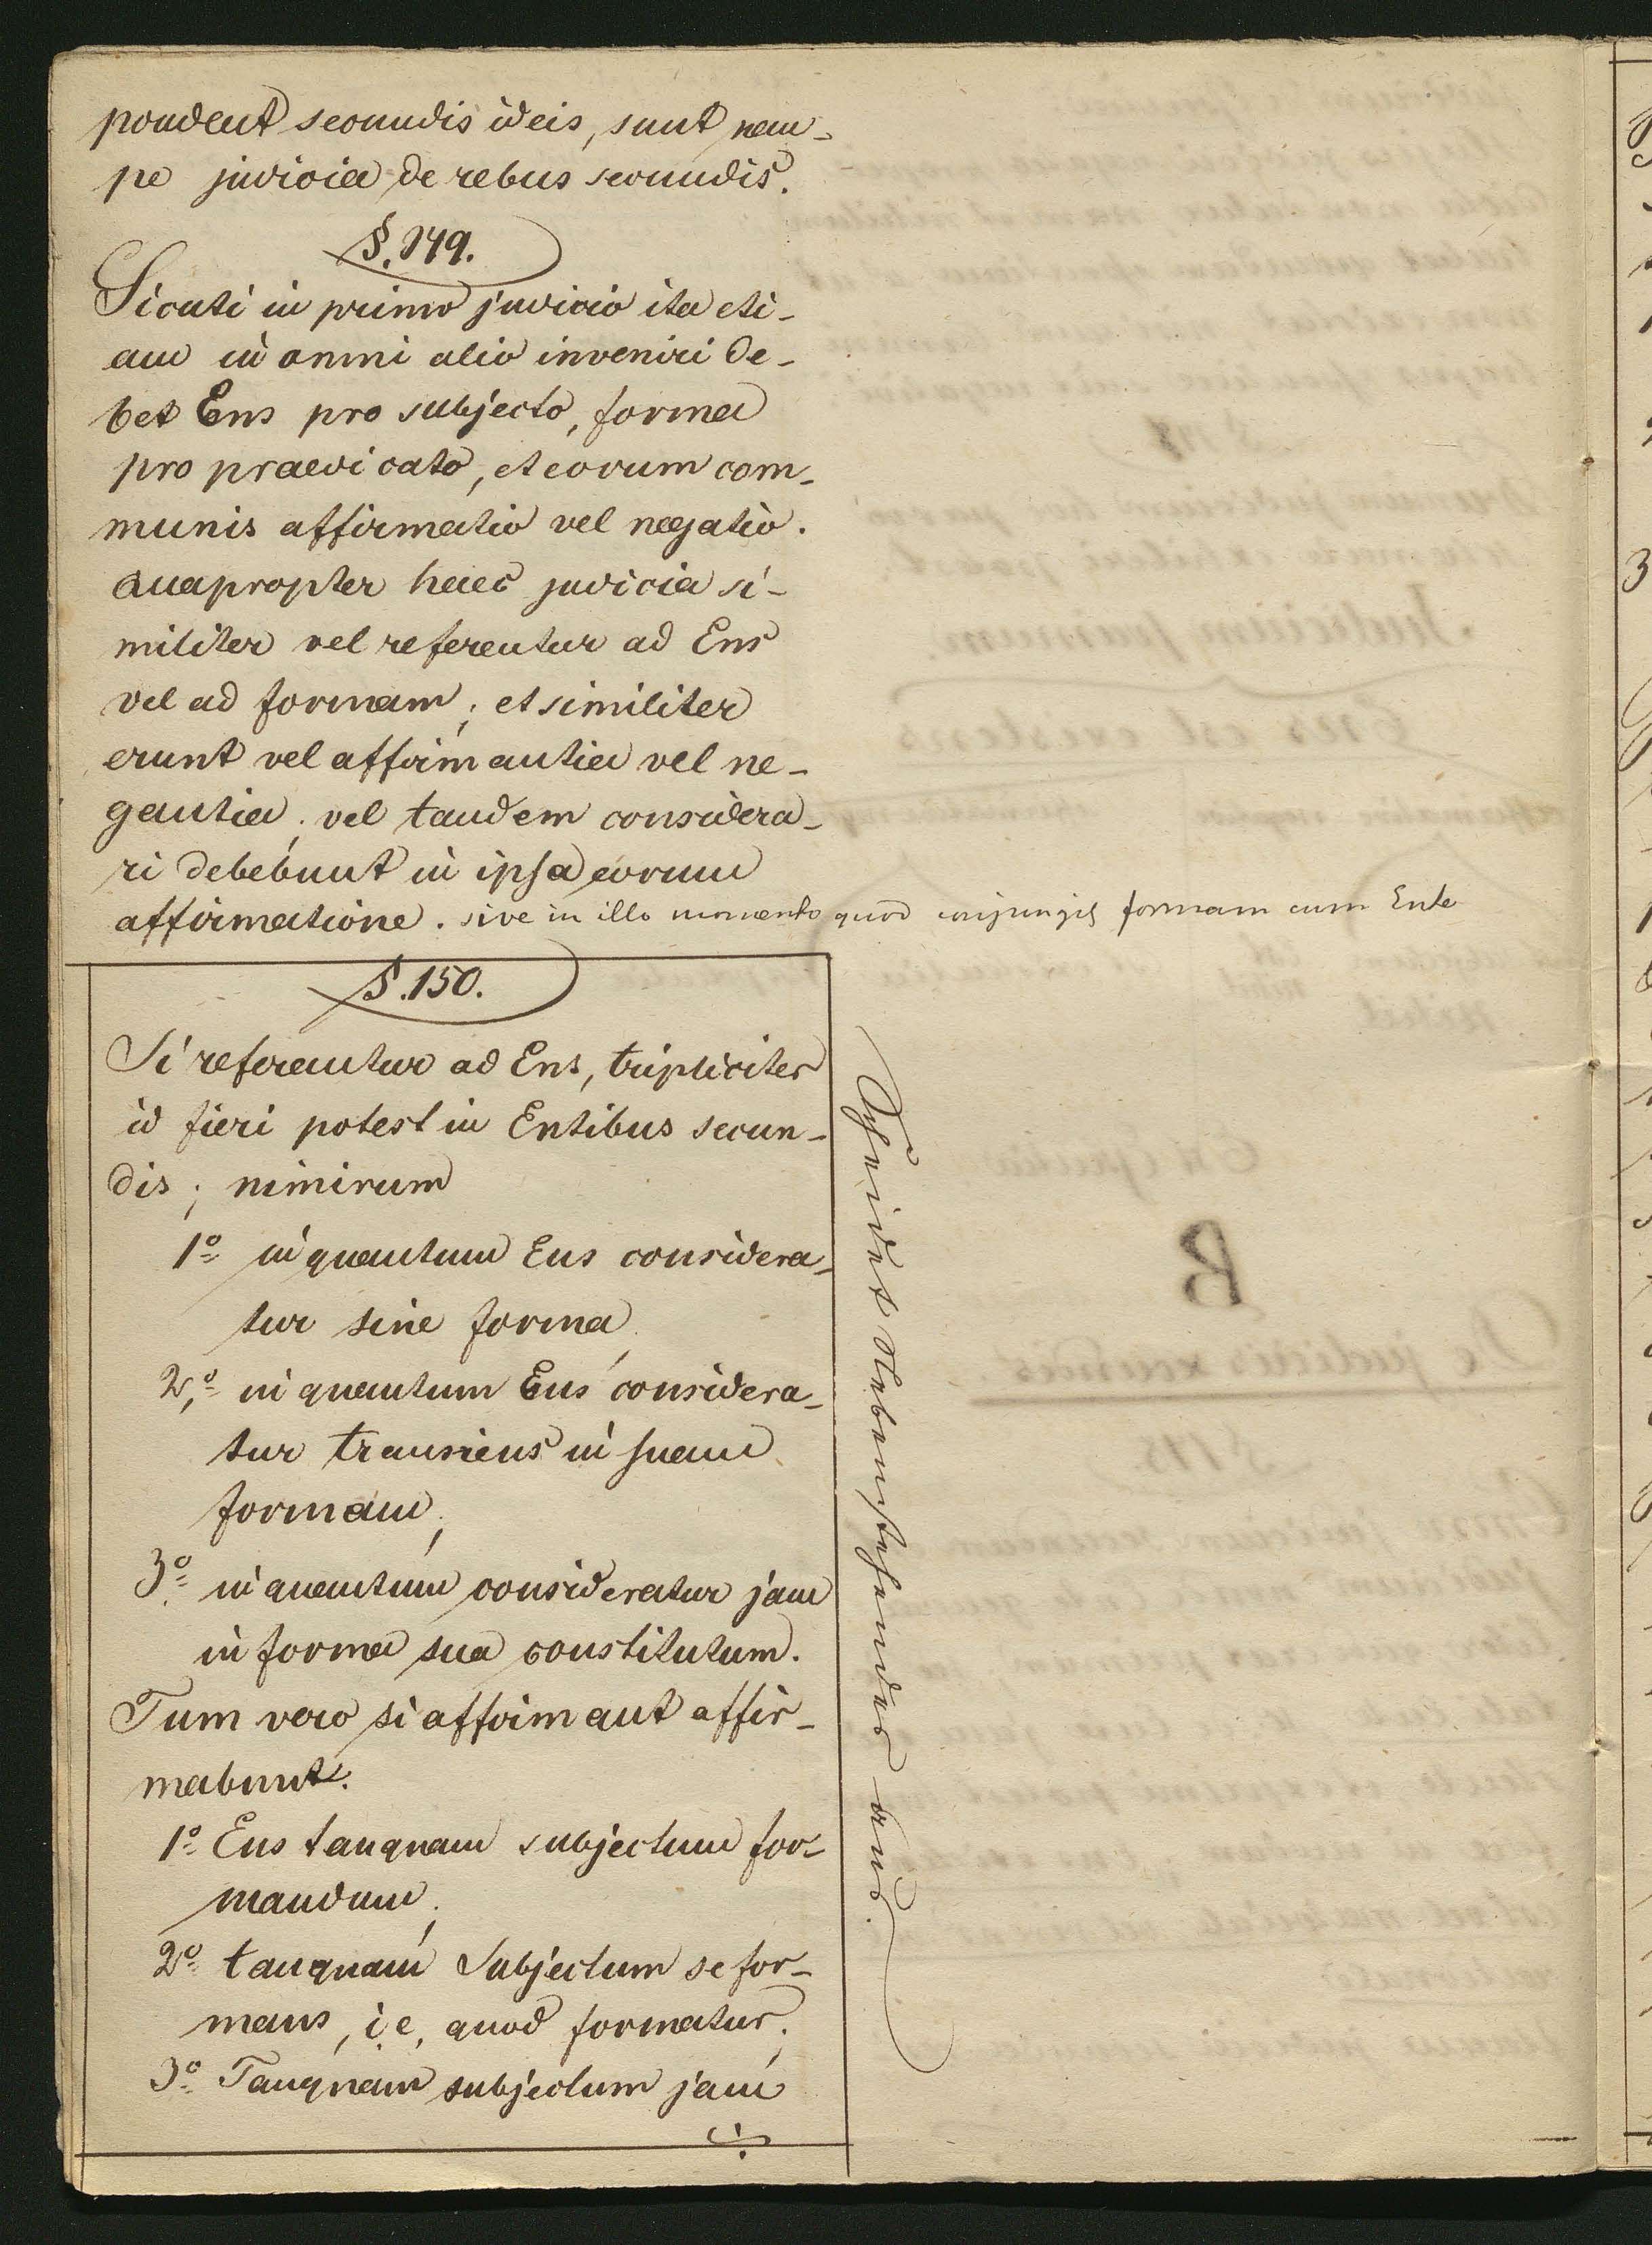 pondent secundis ideis, sunt nem-
pe judicia de rebus secundis.
§. 149.
Sicuti in primo judicio ita eti-
am in omni alio inveniri de-
bet Ens pro subjecto, forma
pro praedicato, et eorum com-
munis affirmatio vel negatio.
Quapropter haec judicia si-
militer vel referentur ad Ens
vel ad formam; et similiter
erunt vel affirmantia vel ne-
gantia; vel tandem considera-
ri debebunt in ipsa eorum
affirmatione. sive in illo momento quod conjungit formam cum Ente
§. 150.
Si referantur ad Ens, tripliciter
id fieri potest in Entibus secun-
dis; nimirum
1º in quantum Ens considera-
tur sine forma,
2º in quantum Ens considera-
tur transiens in suam
formam;
3º in quantum consideratur jam
in forma sua constitutum.
Tum vero si affirmant affir-
mabunt.
1º Ens tanquam subjectum for-
mandum;
2º tanquam Subjectum se for-
mans, i.e. quod formatur;
3º Tanquam subjectum jam